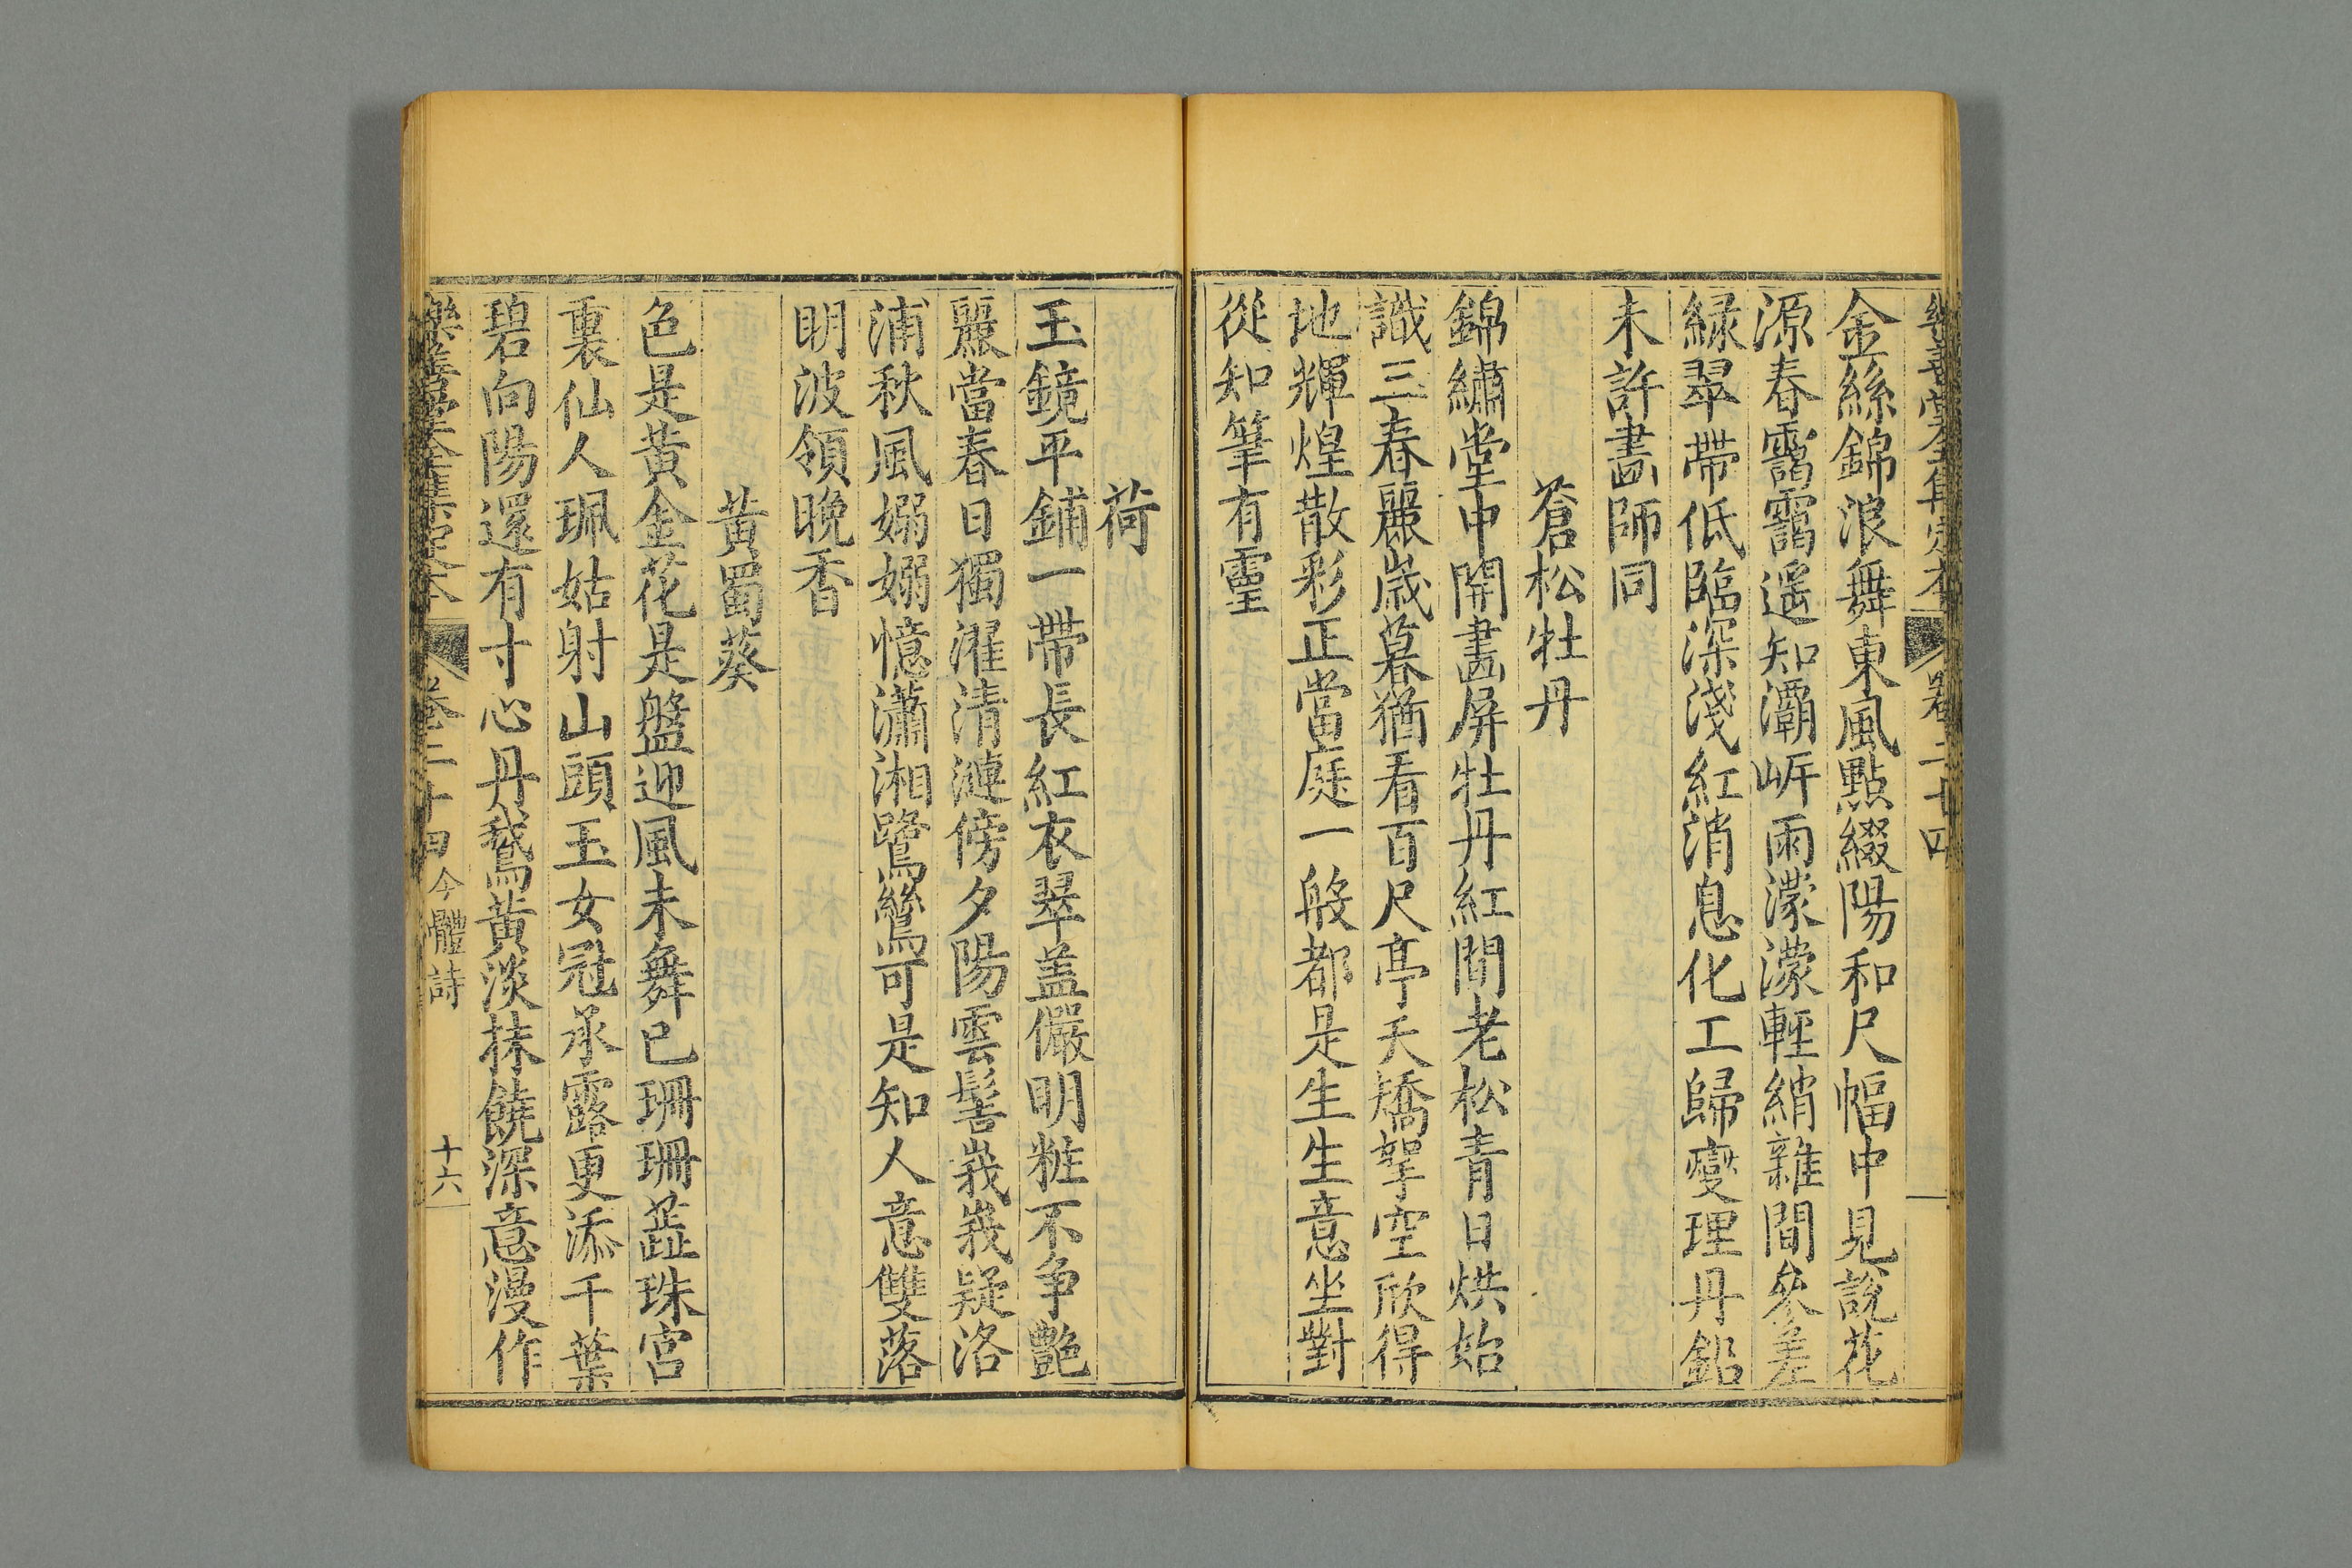 樂善堂全集定本 卷二十四
金絲錦浪舞東風點綴陽和尺幅中見說花
源春靄靄遙知灞岍雨濛濛輕綃雜間參差
綠翠帶低臨深淺紅消息化工歸變理丹鉛
未許畵師同
蒼松牡丹
錦繡堂中開畵屏牡丹紅間老松青日烘始
識三春麗歲暮猶看百尺亭夭矯拏空欣得
地輝煌散彩正當庭一般都是生生意坐對
從知筆有靈
荷
玉鏡平鋪一帶長紅衣翠盖儼明粧不争艷
麗當春日獨濯清漣傍夕陽雲髻峩峩疑洛
浦秋風嫋嫋憶瀟湘鷺鷥可是知人意雙落
明波領晚香
黄蜀葵
色是黄金花是盤迎風未舞已珊珊蕋珠宮
裏仙人珮姑射山頭玉女冠承露更添千葉
碧向陽還有寸心丹鵞黄淡抹饒深意漫作
樂善堂全集定本 卷二十四 今體詩 十六